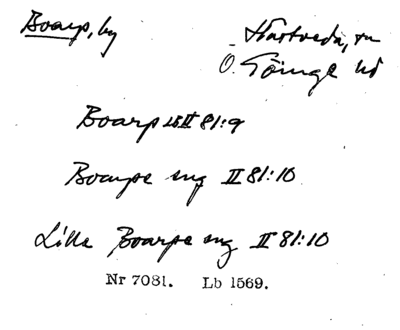 Boarp, by Hästveda, sn
Ö. Göinge hd
Boarp II 81:9
Boarpe sng II 81:10
Lilla Boarpe sng II 81:10
Nr 7081. Lb 1569.